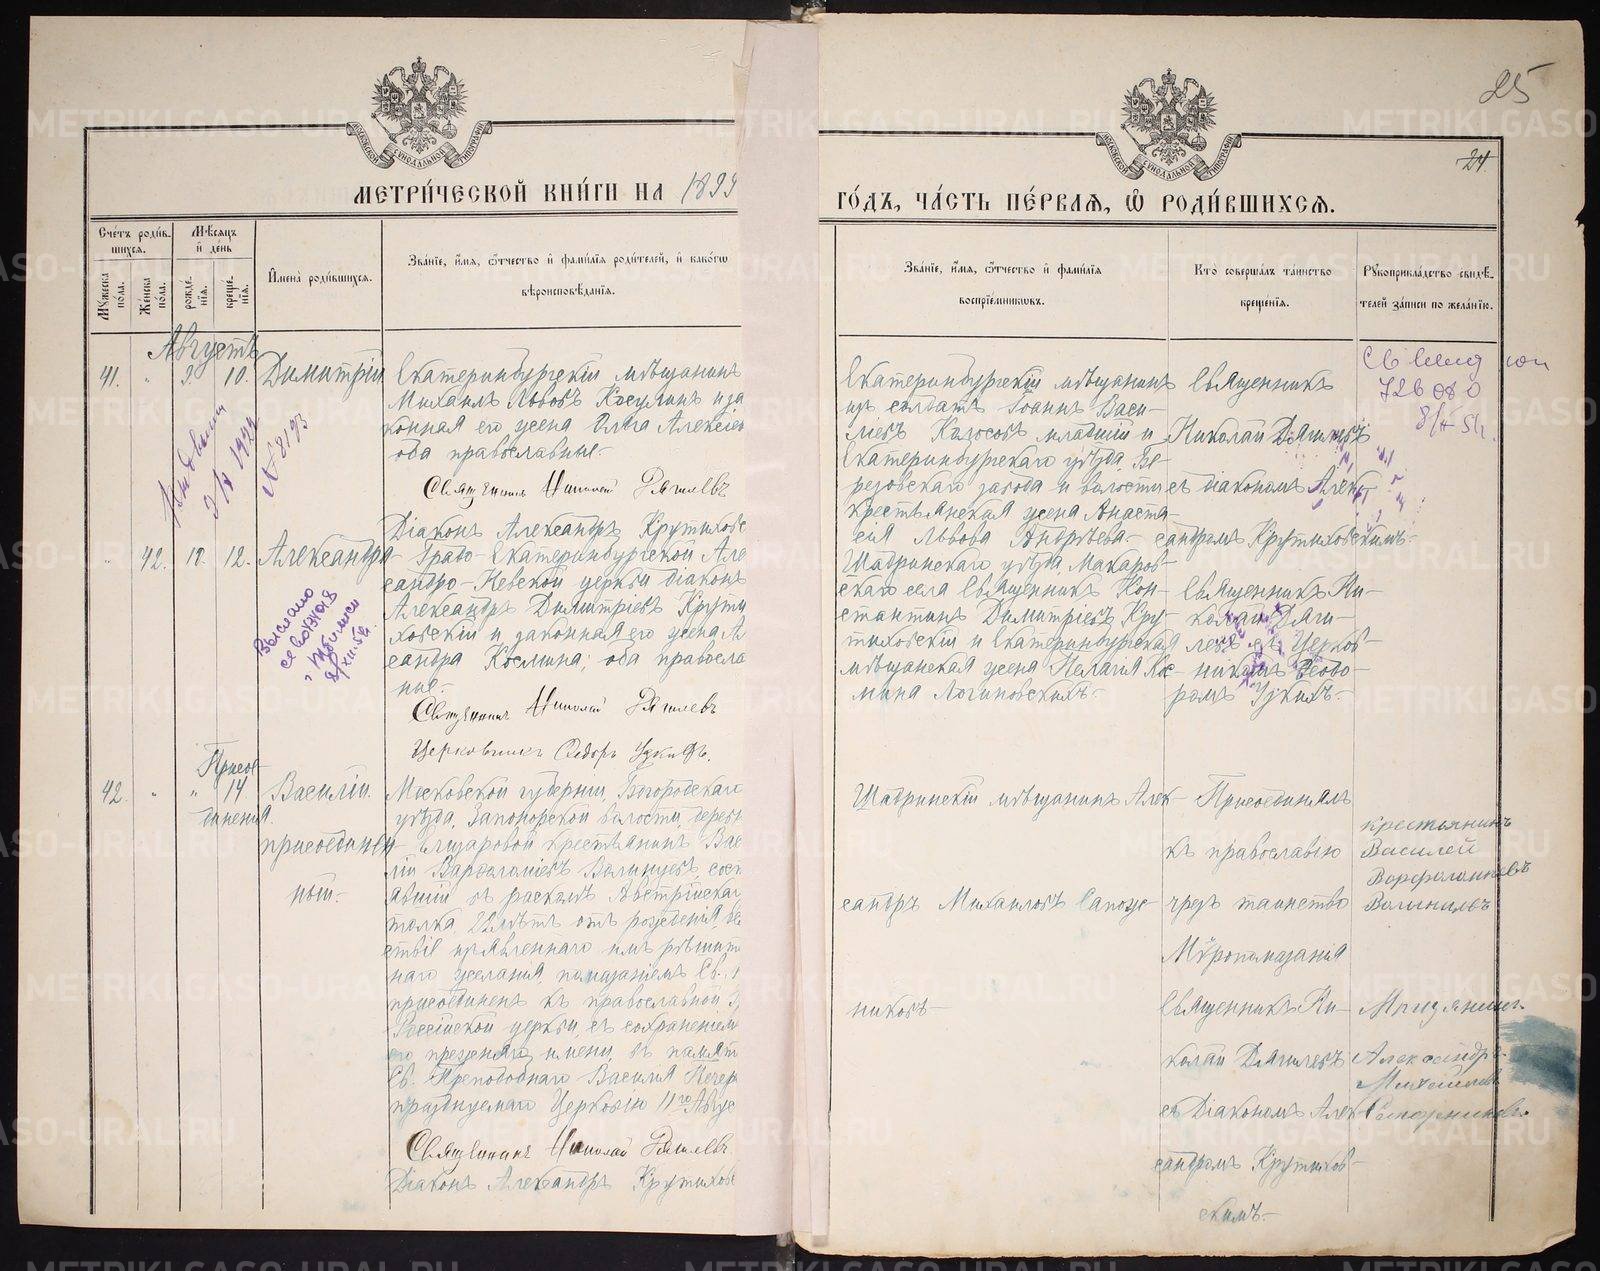 25
24.
МЕТРИ́ЧЕСКОЙ КНИ́ГИ НА 1899
ГО́ДЪ, ЧА́СТЬ ПЕ́РВАѦ, Ѡ҆ РОДИ́ВШИХСѦ.
Сче́тъ роди́в-
шихсѧ.
Мѣ́сѧцъ
и҆ де́нь
Мꙋ́жеска по́ла.
Же́нска по́ла.
рожде́-
нїѧ.
креще́-
нїѧ.
И҆мена̀ роди́вшихсѧ.
Зва́нїе, и҆́мѧ, ѻ҆́тчество и҆ фами́лїѧ роди́телей, и҆ како́гѡ
вѣроисповѣ́данїѧ.
Зва́нїе, и҆́мѧ, ѻ҆́тчество и҆ фами́лїѧ
воспрїе́мникѡвъ.
Кто̀ соверша́лъ та́инство
креще́нїѧ.
Рꙋкоприкла́дство свидѣ́-
телей за́писи по жела́нїю.
Августъ
41. " 9. 10. Димитрій
Екатеринбургскій мѣщанинъ
Михаилъ Львовъ Косулинъ и за
конная его жена Ольга Алексѣев
оба православные.-
Священникъ Николай Дягилевъ
Екатеринбургскій мѣщанинъ
изъ солдатъ Іоаннъ Васи-
льевъ Колосовъ младшій и
Екатеринбургскаго уѣзда Бе-
резовскаго завода и волости
крестьянская жена Анаста-
сія Львова Андрѣева.-
Священникъ
Николай Дягилевъ
съ діакономъ Алек-
сандромъ Крутиховскимъ.-
728080
" 42. 10. 12. Александра
Діаконъ Александръ Крутиховс
Градо-Екатеринбургской Але
сандро-Невской церкви діаконъ
Александръ Димитріевъ Крути
ховскій и законная его жена А
сандра Космина; оба правосла
ные.-
Священникъ Николай Дягилевъ
Церковникъ Ѳедоръ Узкихъ.
Выслано
Шадринскаго уѣзда Макаров-
скаго села Священникъ Кон-
стантинъ Димитріевъ Кру-
тиховскій и Екатеринбургская
мѣщанская жена Пелагія Кос-
мина Логиновскихъ.-
Священникъ Ни-
колай Дяги-
левъ съ Церков-
никомъ Ѳеодо-
ромъ Узкихъ.-
Присое-
42. " " 14
диненія.
Василій.
присоединен-
ный.-
Московской губерніи, Богородскаго
уѣзда, Запонорской волости, дерев
Елизаровой крестьянинъ Вас
лій Варѳоломіевъ Волинцевъ, сост
явшій въ расколѣ Австрійскаг
толка 22 лѣтъ отъ рожденія,
ствіе изъявленнаго имъ рѣшит
наго желанія, помазаніемъ Св.
присоединенъ къ православной
Россійской церкви, съ сохраненіемъ
его прежняго имени, въ память
Св. Преподобнаго Василія Печер
празднуемаго Церковію 11го Авгус
Священникъ Николай Дягилевъ
Діаконъ Александръ Крутихов
Шадринскій мѣщанинъ Алек-
сандръ Михаиловъ Сапож-
никовъ-
Присоединялъ
къ православію
чрезъ таинство
Мѵропомазанія
Священникъ Ни-
колай Дягилевъ
съ Діакономъ Алек-
сандромъ Крутихов-
скимъ.-
крестьянинъ
Василей
Александръ